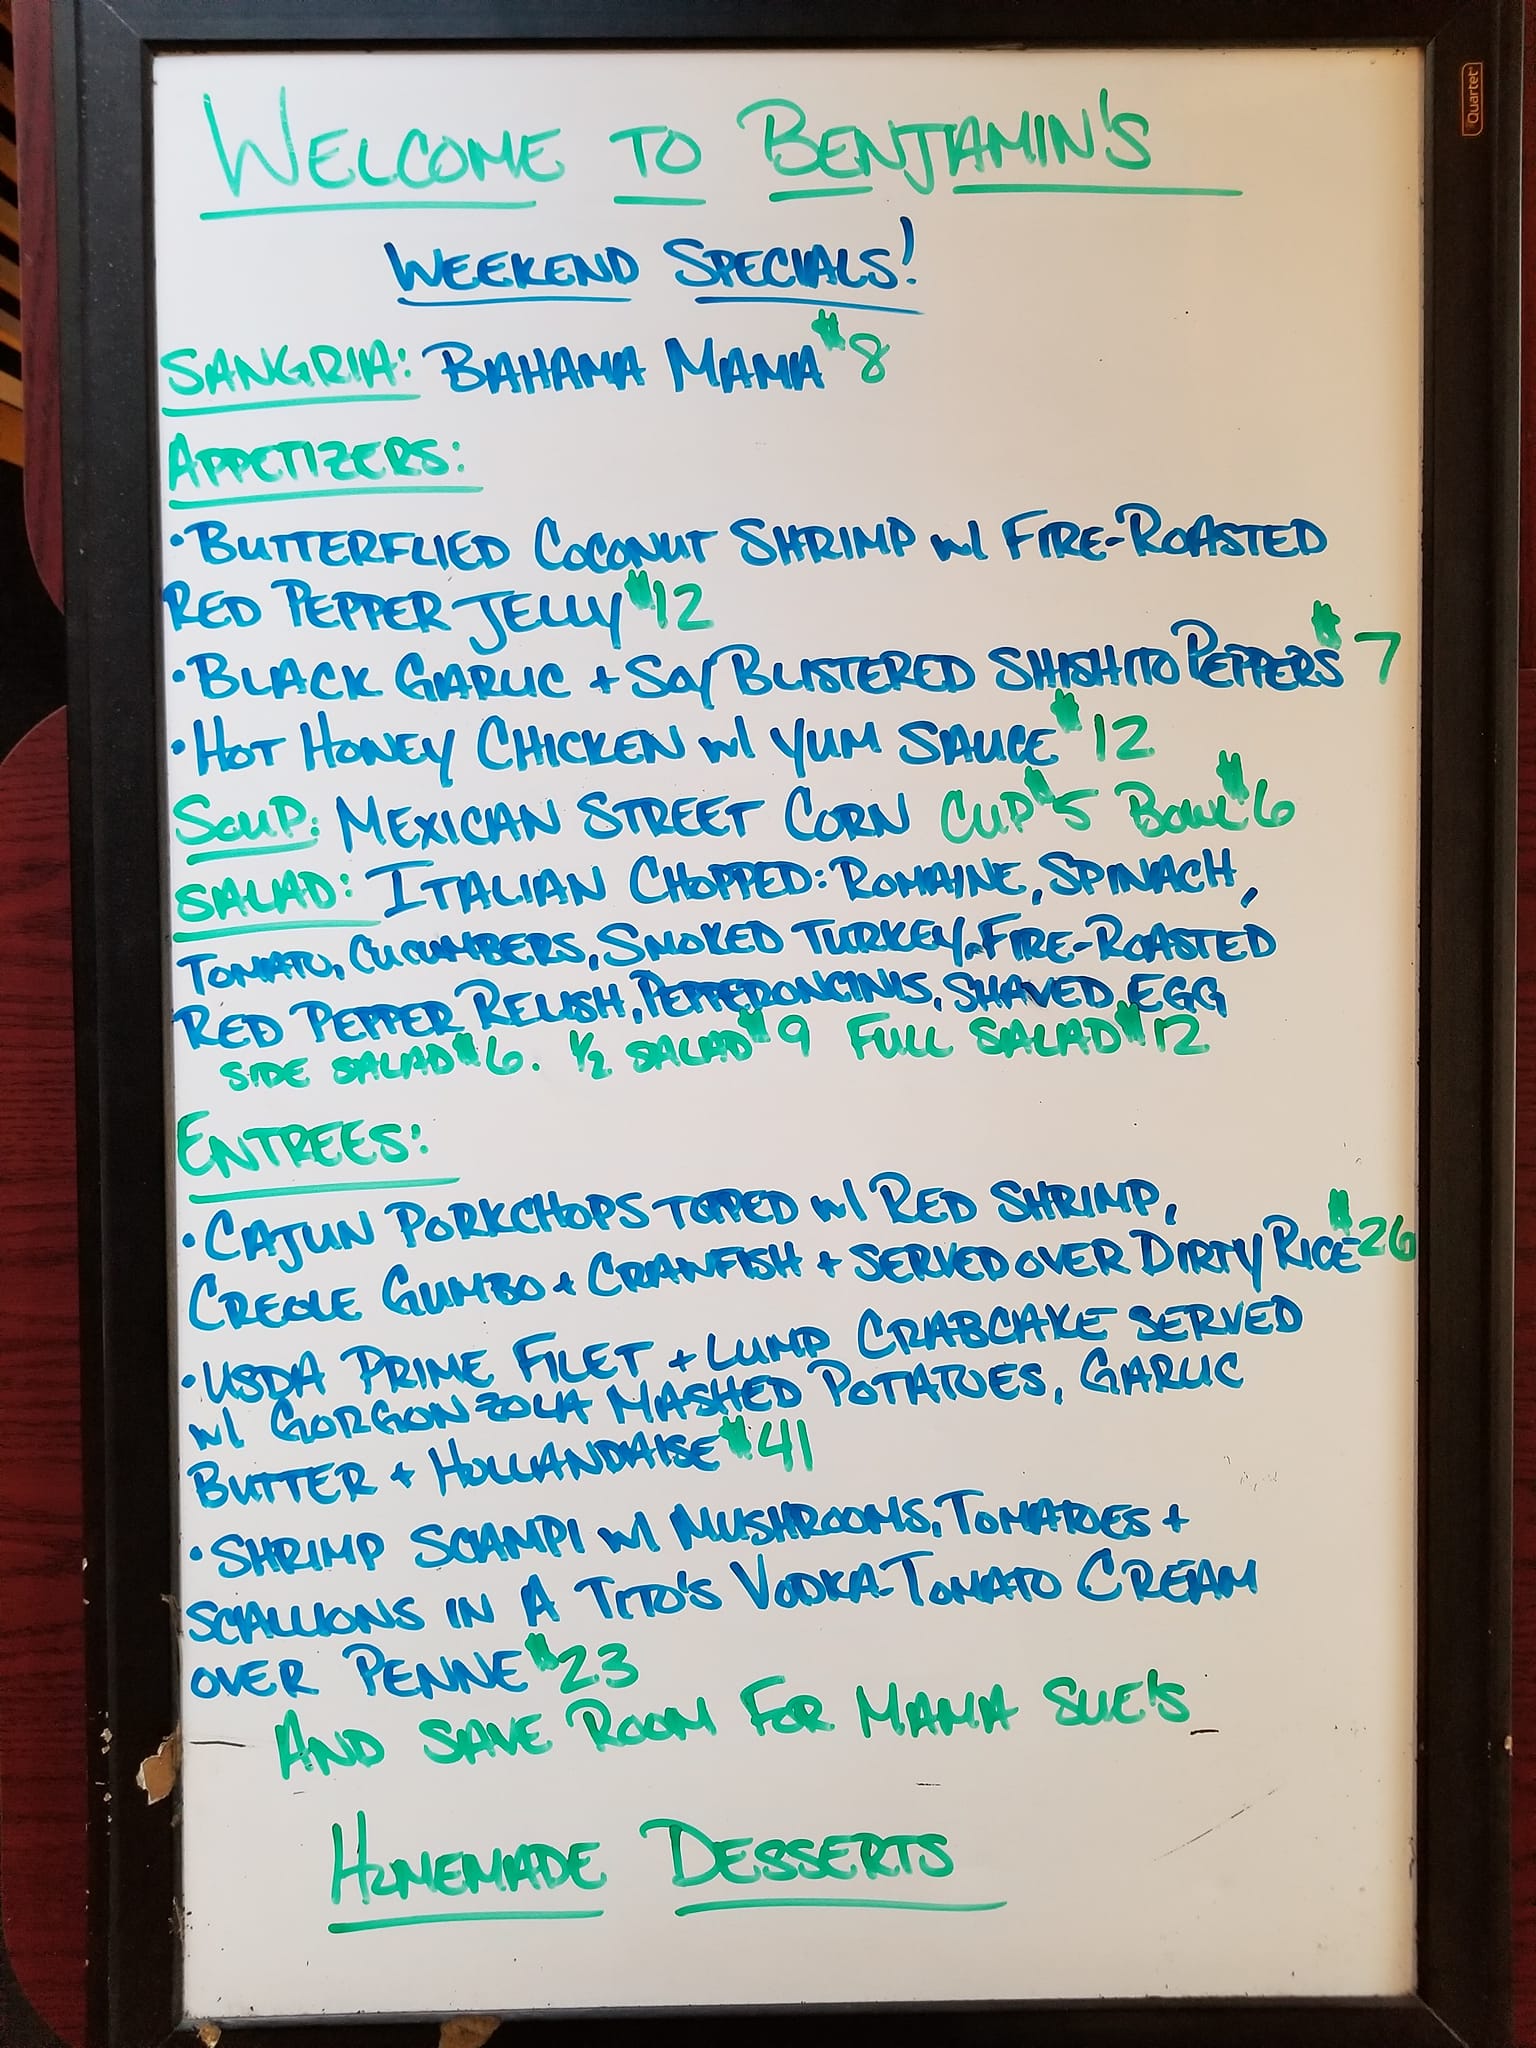 WELCOME TO BENJAMIN'S
WEEKEND SPECIALS!
SANGRIA: BAHAMA MAMA $8
APPETIZERS:
• BUTTERFLIED COCONUT SHRIMP w/ FIRE-ROASTED
RED PEPPER JELLY $12
• BLACK GARLIC + SOY BLISTERED SHISHITO PEPPERS $7
• HOT HONEY CHICKEN w/ YUM SAUCE $12
SOUP: MEXICAN STREET CORN CUP $5 BOWL $6
SALAD: ITALIAN CHOPPED: ROMAINE, SPINACH,
TOMATO, CUCUMBERS, SMOKED TURKEY, FIRE-ROASTED
RED PEPPER RELISH, PEPPERONCINIS, SHAVED EGG
SIDE SALAD $6. ½ SALAD $9 FULL SALAD $12
ENTREES:
• CAJUN PORKCHOPS TOPPED w/ RED SHRIMP,
CREOLE GUMBO + CRAWFISH + SERVED OVER DIRTY RICE $26
• USDA PRIME FILET + LUMP CRABCAKE SERVED
w/ GORGONZOLA MASHED POTATOES, GARLIC
BUTTER + HOLLANDAISE $41
• SHRIMP SCAMPI w/ MUSHROOMS, TOMATOES +
SCALLIONS IN A TITO'S VODKA-TOMATO CREAM
OVER PENNE $23
AND SAVE ROOM FOR MAMA SUE'S
HOMEMADE DESSERTS
Quartet